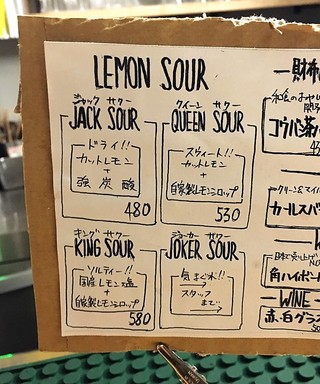 LEMON SOUR
ジャック サワー
JACK SOUR
ドライ!!
カットレモン
+
強炭酸
480
クイーン サワー
QUEEN SOUR
スウィート!!
カットレモン
+
自家製レモンシロップ
530
キング サワー
KING SOUR
ソルティー!!
国産レモン塩
+
自家製レモンシロップ
580
ジョーカー サワー
JOKER SOUR
気まぐれ!!
スタッフ
まで
一財布
コウバ茶ハ
カールスバ
角ハイボー
WINE
赤・白グラス